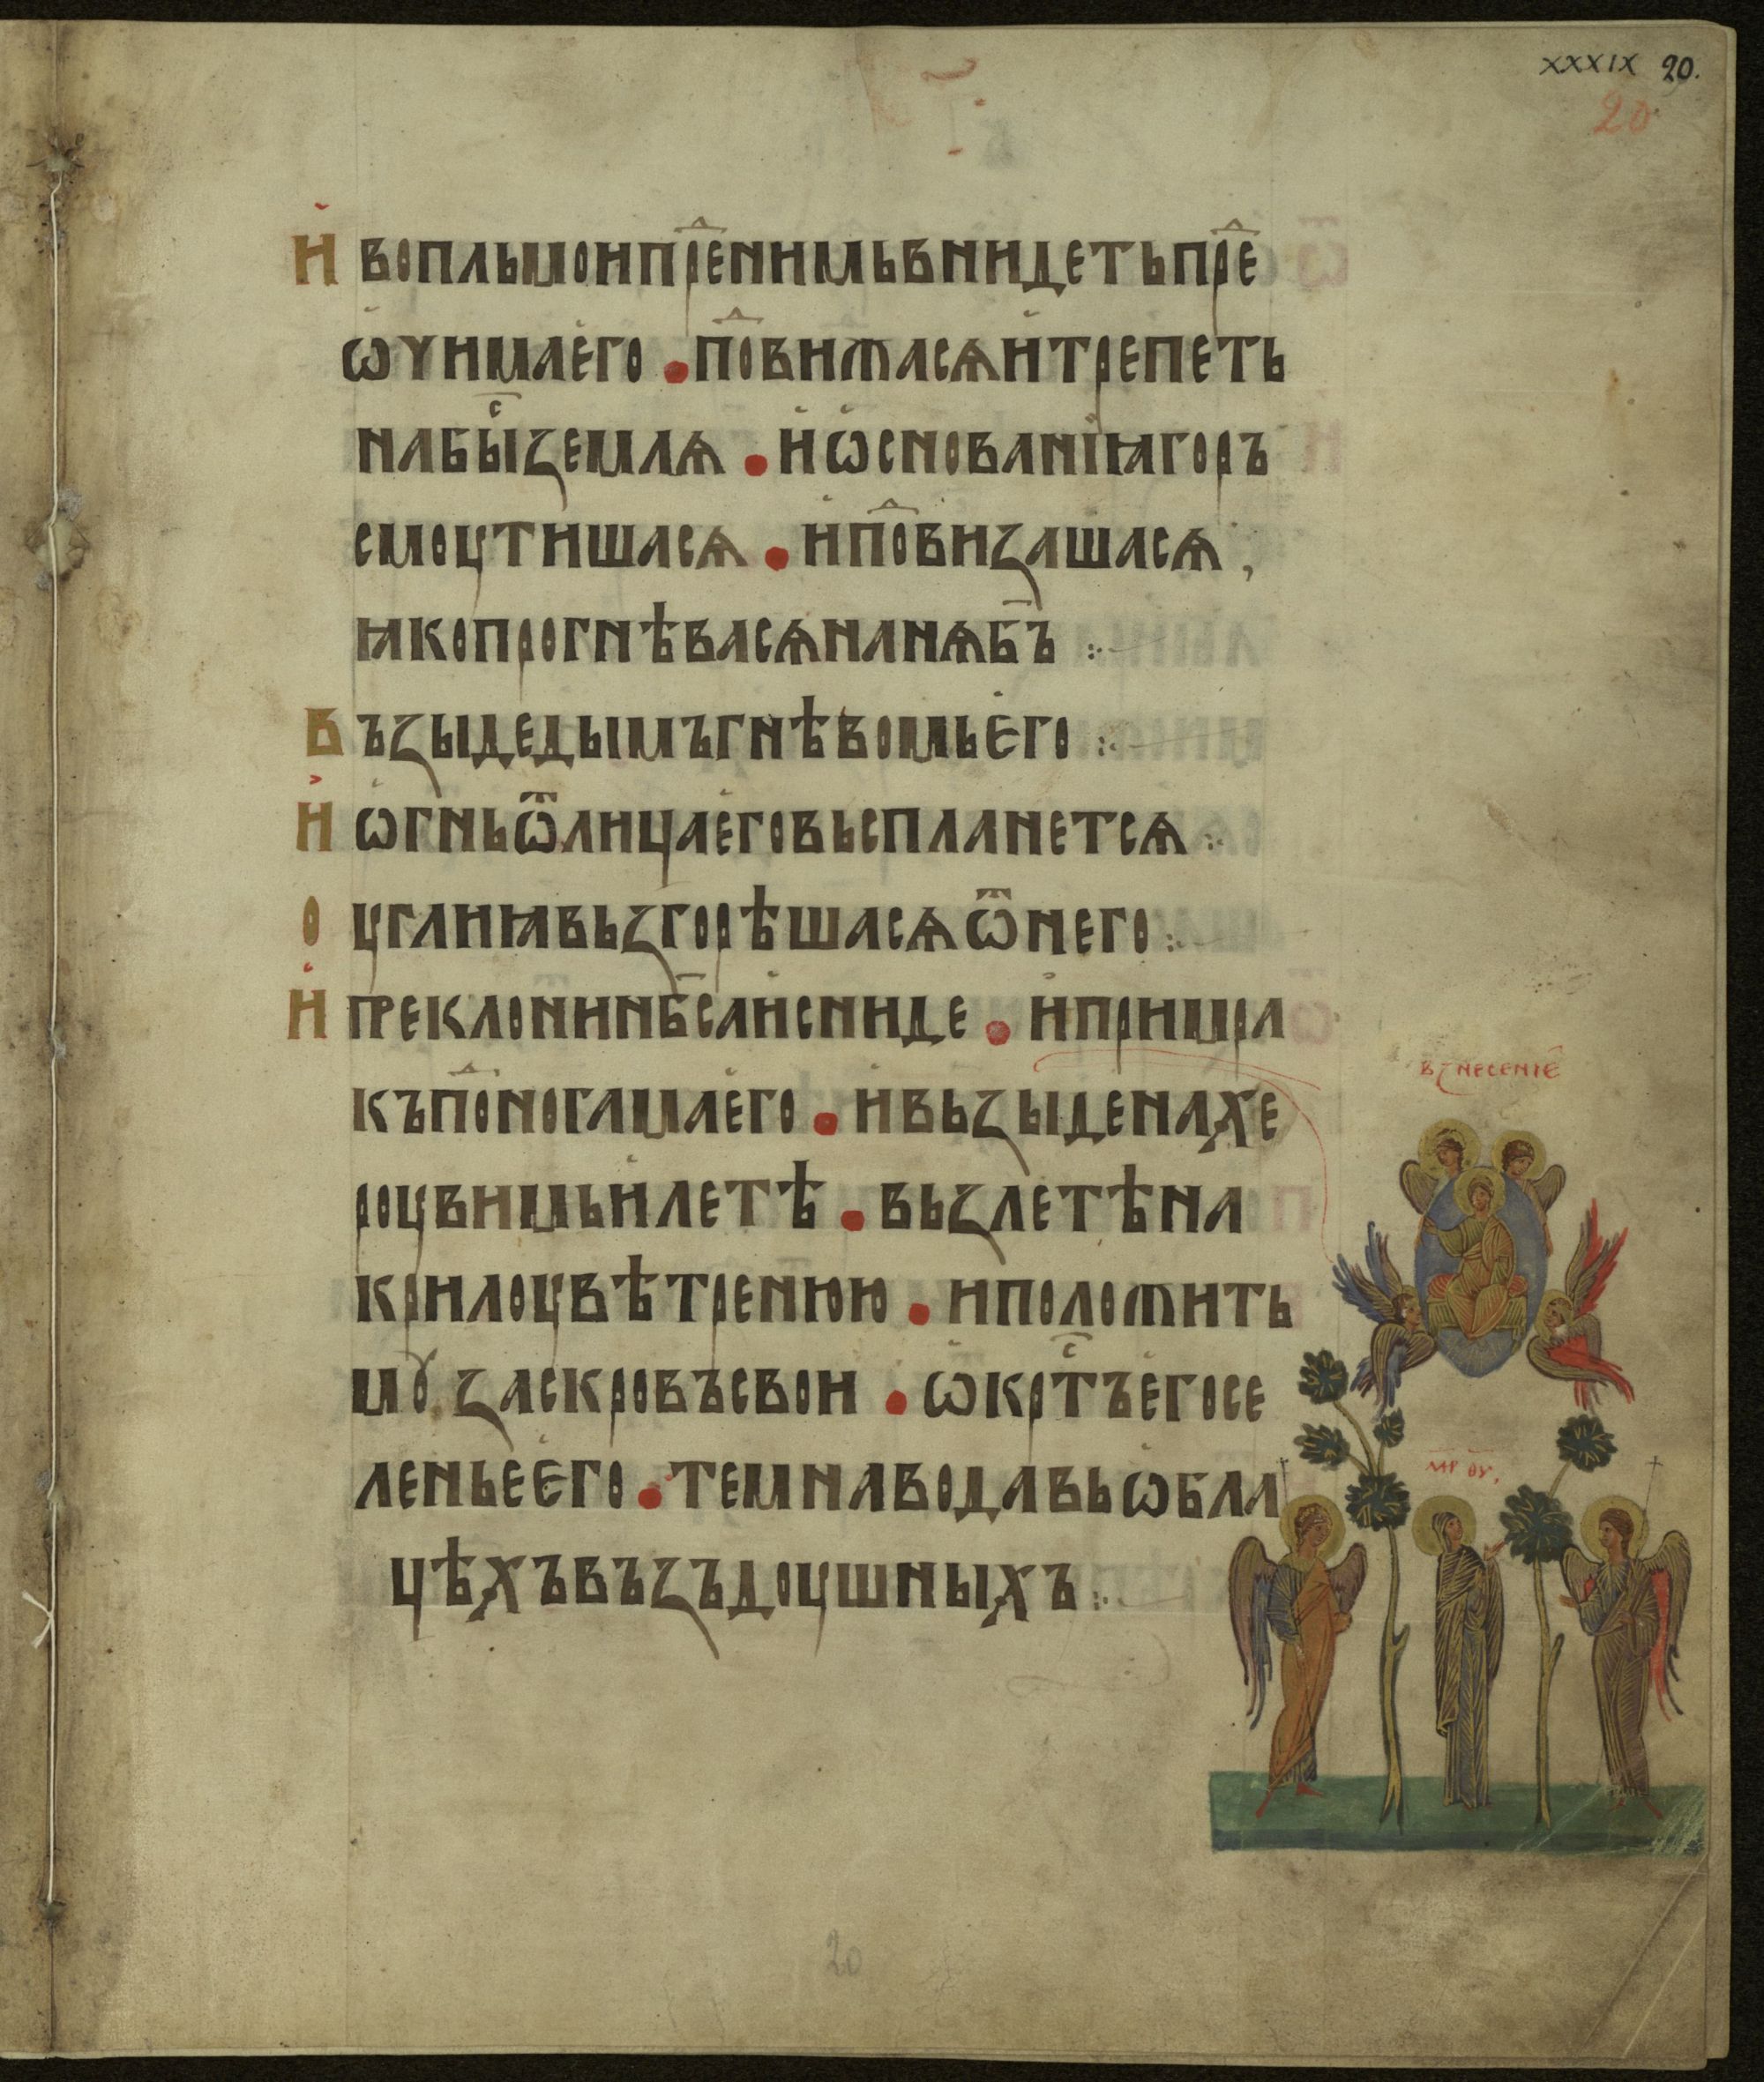 XXXIX 20.
20
И҆ вопльмоипрⷣенимьвнидетьпрⷣе
ѡ҆чимає҆го • поⷣвижасѧи҆трепеть
набыⷭ҇землѧ • и҆ѡ҆снованіꙗгоръ
смоутишасѧ • и҆поⷣвизашасѧ,
ꙗкопрогнѣвасѧнанѧб҃ъ :
Възыдедымъгнѣвомьє҆го :
И҆ ѡ҆гньѿлицає҆говьспланетсѧ :
Оуглиꙗвьзгорѣшасѧѿнего :
И҆ преклонинб҃саи҆сниде • и҆примра
къпоⷣногамає҆го • и҆вьзыденахе
роувимьи҆летѣ • вьзлетѣна
крилоувѣтренюю • иположить
мꙋзаскровъсвои • ѡ҆крⷭ҇тъє҆госе
леньеє҆го • темнаводавьѡ҆бла
цѣхъвъзъдоушныхъ :
взнесениѥ
мр҃ ѳу҃
20